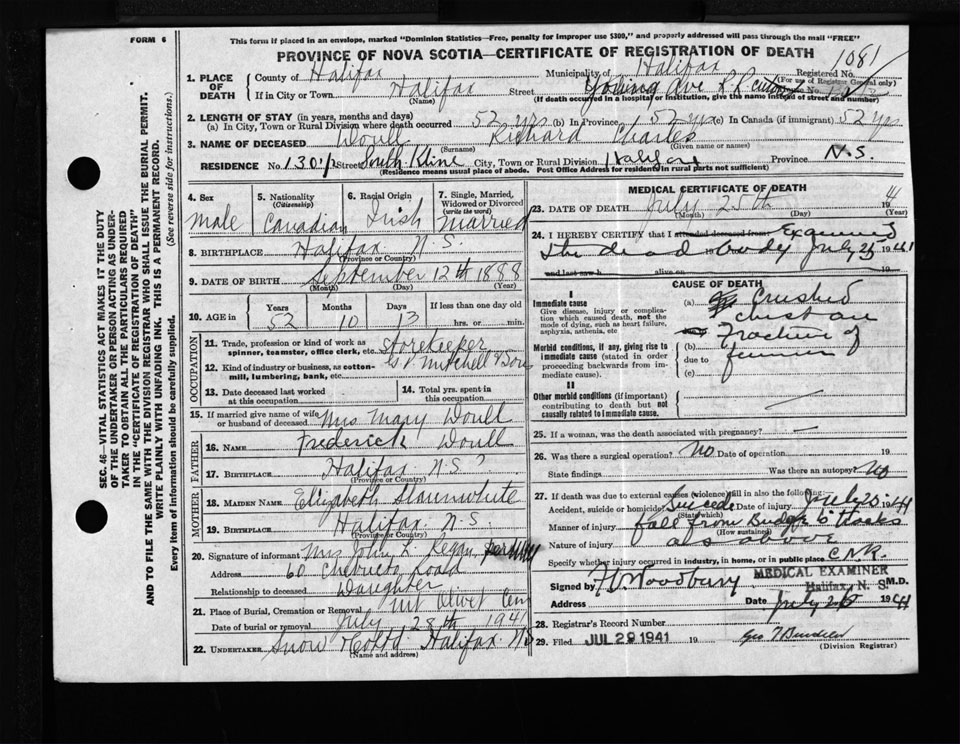 FORM 6
This form if placed in an envelope, marked "Dominion Statistics—Free, penalty for improper use $300," and properly addressed will pass through the mail "FREE"
PROVINCE OF NOVA SCOTIA—CERTIFICATE OF REGISTRATION OF DEATH
1081
1. PLACE OF DEATH
County of Halifax Municipality of Halifax Registered No.
(For use of Registrar General only)
If in City or Town Halifax Street Ave R R
(Name) (If death occurred in a hospital or institution, give the name instead of street and number)
2. LENGTH OF STAY (in years, months and days)
(a) In City, Town or Rural Division where death occurred 52 yrs (b) In Province 52 yrs (c) In Canada (if immigrant) 52 yrs
3. NAME OF DECEASED Woull Richard Charles
(Surname) (Given name or names)
RESIDENCE No 130½ Street South Kline City, Town or Rural Division Halifax Province N.S.
(Residence means usual place of abode. Post Office Address for residents in rural parts not sufficient)
4. Sex
Male
5. Nationality (Citizenship)
Canadian
6. Racial Origin
Irish
7. Single, Married, Widowed or Divorced (write the word)
Married
8. BIRTHPLACE Halifax N.S.
(Province or Country)
9. DATE OF BIRTH September 12th 1888
(Month) (Day) (Year)
10. AGE
Years Months Days If less than one day old
52 10 13 hrs. or min.
OCCUPATION
11. Trade, profession or kind of work as spinner, teamster, office clerk, etc. Storekeeper
12. Kind of industry or business, as cotton-mill, lumbering, bank, etc. Mitchell & Sons
13. Date deceased last worked at this occupation
14. Total yrs. spent in this occupation
15. If married give name of wife or husband of deceased Mrs Mary Woull
FATHER
16. NAME Frederick Woull
17. BIRTHPLACE Halifax N.S.?
(Province or Country)
MOTHER
18. MAIDEN NAME Elizabeth Slaunwhite
19. BIRTHPLACE Halifax N.S.
(Province or Country)
20. Signature of informant Mrs John L. Regan
Address 60 Chebucto Road
Relationship to deceased Daughter
21. Place of Burial, Cremation or Removal Mt Olivet Cem
Date of burial or removal July 28th 1941
22. UNDERTAKER Snow & Co Ltd Halifax NS
(Name and address)
MEDICAL CERTIFICATE OF DEATH
23. DATE OF DEATH July 25th 1941
(Month) (Day) (Year)
24. I HEREBY CERTIFY that I attended deceased from Examined
the dead body July 25 1941
and last saw h alive on 19
CAUSE OF DEATH
I
Immediate cause
Give disease, injury or complication which caused death, not the mode of dying, such as heart failure, asphyxia, asthenia, etc
(a) Crushed
chest and
Morbid conditions, if any, giving rise to immediate cause (stated in order proceeding backwards from immediate cause).
(b) Fracture of
due to femur
(c)
II
Other morbid conditions (if important) contributing to death but not causally related to immediate cause.
25. If a woman, was the death associated with pregnancy?
26. Was there a surgical operation? No Date of operation 19
State findings Was there an autopsy? No
27. If death was due to external causes (violence) fill in also the following:
Accident, suicide or homicide? Suicide Date of injury July 25 1941
(State which)
Manner of injury fall from Bridge to tracks
(How sustained)
Nature of injury as above
Specify whether injury occurred in industry, in home, or in public place C N R.
Signed by Woodbury M.D.
MEDICAL EXAMINER
Halifax, N. S.
Address Date July 25 1941
28. Registrar's Record Number
29. Filed JUL 29 1941 19 Geo
(Division Registrar)
SEC. 46—VITAL STATISTICS ACT MAKES IT THE DUTY
OF THE UNDERTAKER OR PERSON ACTING AS UNDER-
TAKER TO OBTAIN ALL THE PARTICULARS REQUIRED
IN THE "CERTIFICATE OF REGISTRATION OF DEATH"
AND TO FILE THE SAME WITH THE DIVISION REGISTRAR WHO SHALL ISSUE THE BURIAL PERMIT.
WRITE PLAINLY WITH UNFADING INK. THIS IS A PERMANENT RECORD.
Every item of information should be carefully supplied. (See reverse side for instructions.)